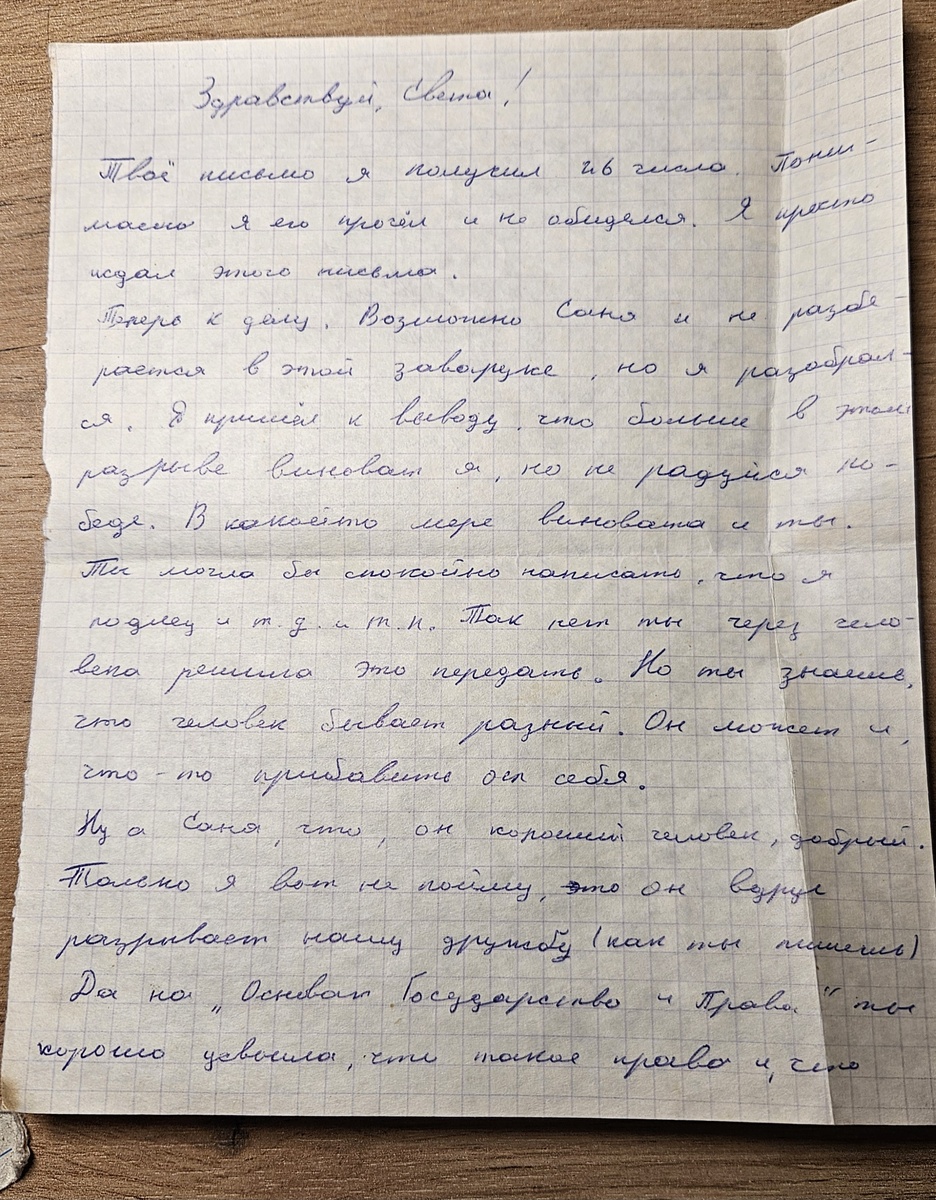 Здравствуй, Света!
Твоё письмо я получил 26 числа. Пони-
маешь я его прочёл и не обиделся. Я просто
ждал этого письма.
Теперь к делу. Возможно Саня и не разбе-
рается в этой заварухе, но я разобрал-
ся. Я пришёл к выводу, что больше в этом
разрыве виноват я, но не радуйся по-
беде. В какойто мере виновата и ты.
Ты могла бы спокойно написать, что я
подлец и т.д. и т.п. Так нет ты через чело-
века решила это передать. Но ты знаешь,
что человек бывает разный. Он может и,
что-то прибавить от себя.
Ну а Саня, что, он хороший человек, добрый.
Только я вот не пойму, это он вдруг
разрывает нашу дружбу (как ты пишешь)
Да на „Основах Государства и Права" ты
хорошо усвоила, что такое право и, что